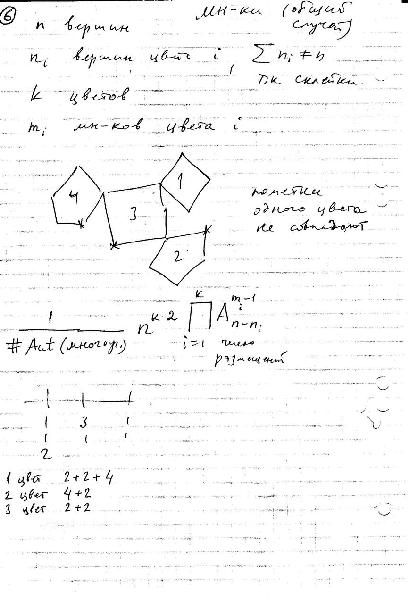 6
мн-ки (общий
случай)
n вершин
n_i вершин цвета i, ∑ n_i ≠ n
т.к. склейки
k цветов
m_i мн-ков цвета i
4
3
1
2
пометки
одного цвета
не совпадают
1 / # Aut (многоуг.) n^{k-2} ∏_{i=1}^{k} A_{n-n_i}^{m_i-1}
число
размещений
1 3 1
1 1 1
2
1 цвет 2+2+4
2 цвет 4+2
3 цвет 2+2